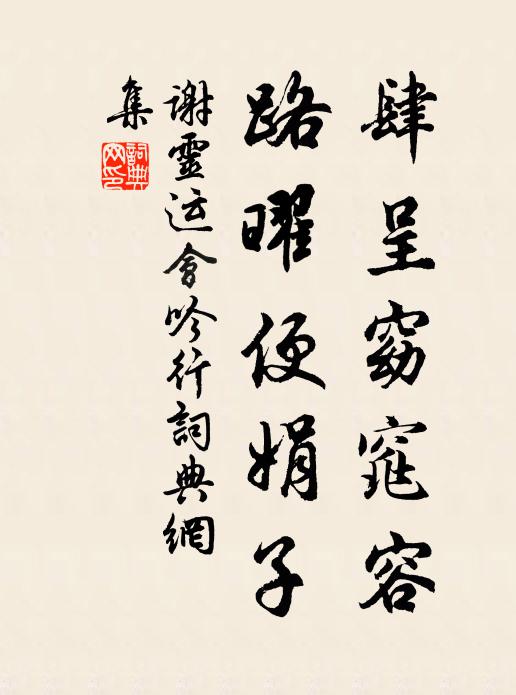 肆呈窈窕容
路曜便娟子
谢靈运會吟行詞典網
集
詞典網印